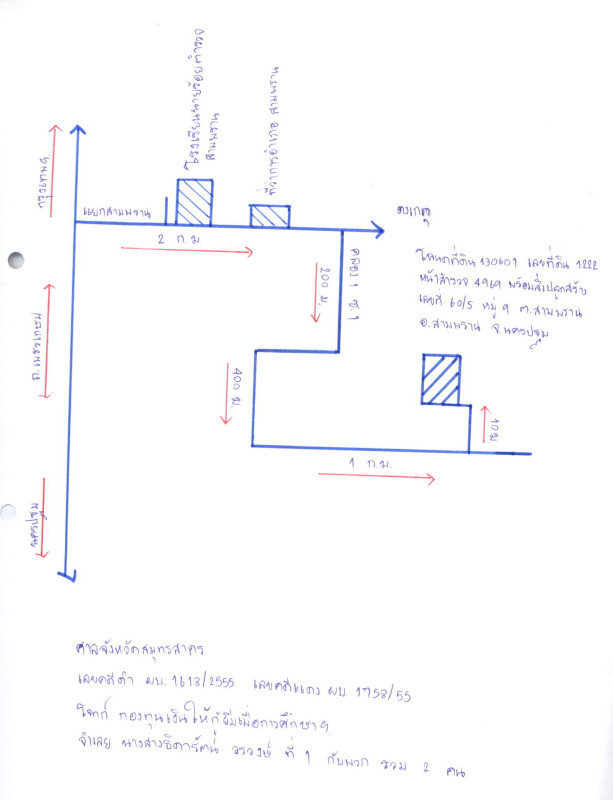 โรงเรียนนายร้อยตำรวจ
สามพราน
ที่ว่าการอำเภอ สามพราน
กรุงเทพฯ
แยกสามพราน
2 ก.ม.
คลอง 1 ซ 1
200 ม.
ถ.เพชรเกษม
400 ม.
1 ก.ม.
10 ม
นครปฐม
โฉนดที่ดิน 130601 เลขที่ดิน 1222
หน้าสำรวจ 4969 พร้อมสิ่งปลูกสร้าง
เลขที่ 60/5 หมู่ 9 ต.สามพราน
อ.สามพราน จ.นครปฐม
ศาลจังหวัดสมุทรสาคร
เลขคดีดำ ผบ.1618/2555 เลขคดีแดง ผบ.1758/55
โจทก์ กองทุนเงินให้กู้ยืมเพื่อการศึกษาฯ
จำเลย นางสาวธิดารัตน์ วรวงษ์ ที่ 1 กับพวก รวม 2 คน